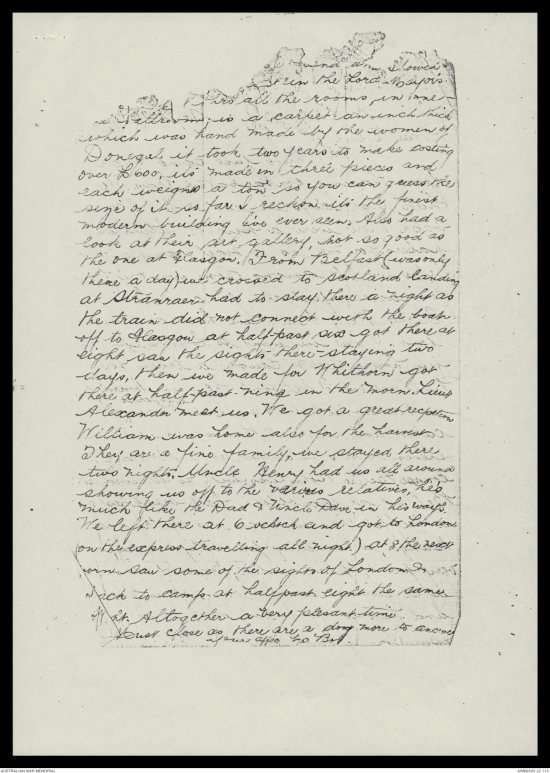 in the Lord Mayor's
all the rooms, in one
Ballroom, is a carpet an inch thick
which was hand made by the women of
Donegal it took two years to make costing
over £600, its made in three pieces and
each weighs a ton so you can guess the
size of it, so far I reckon its the finest
modern building I've ever seen. Also had a
look at their art gallery, not so good as
the one at Glasgow. From Belfast (was only
there a day) we crossed to Scotland landing
at Stranraer had to stay there a night as
the train did not connect with the boat
off to Glasgow at half-past six got there at
eight saw the sights there - staying two
days, then we made for Whithorn got
there at half-past-nine in the morn. Lieut
Alexander meet us. We got a great reception
William was home also for the harvest
They are a fine family, we stayed there
two nights, Uncle Henry had us all around
showing us off to the various relatives, he's
much like the Dad & Uncle Dave in his ways.
We left there at 6 o'clock and got to London
(on the express travelling all night) at 8 the next
saw some of the sights of London
to camp at halfpast eight the same
Altogether a very plesant time.
Must close as there are a dong more to answer
Your affec
AUSTRALIAN WAR MEMORIAL